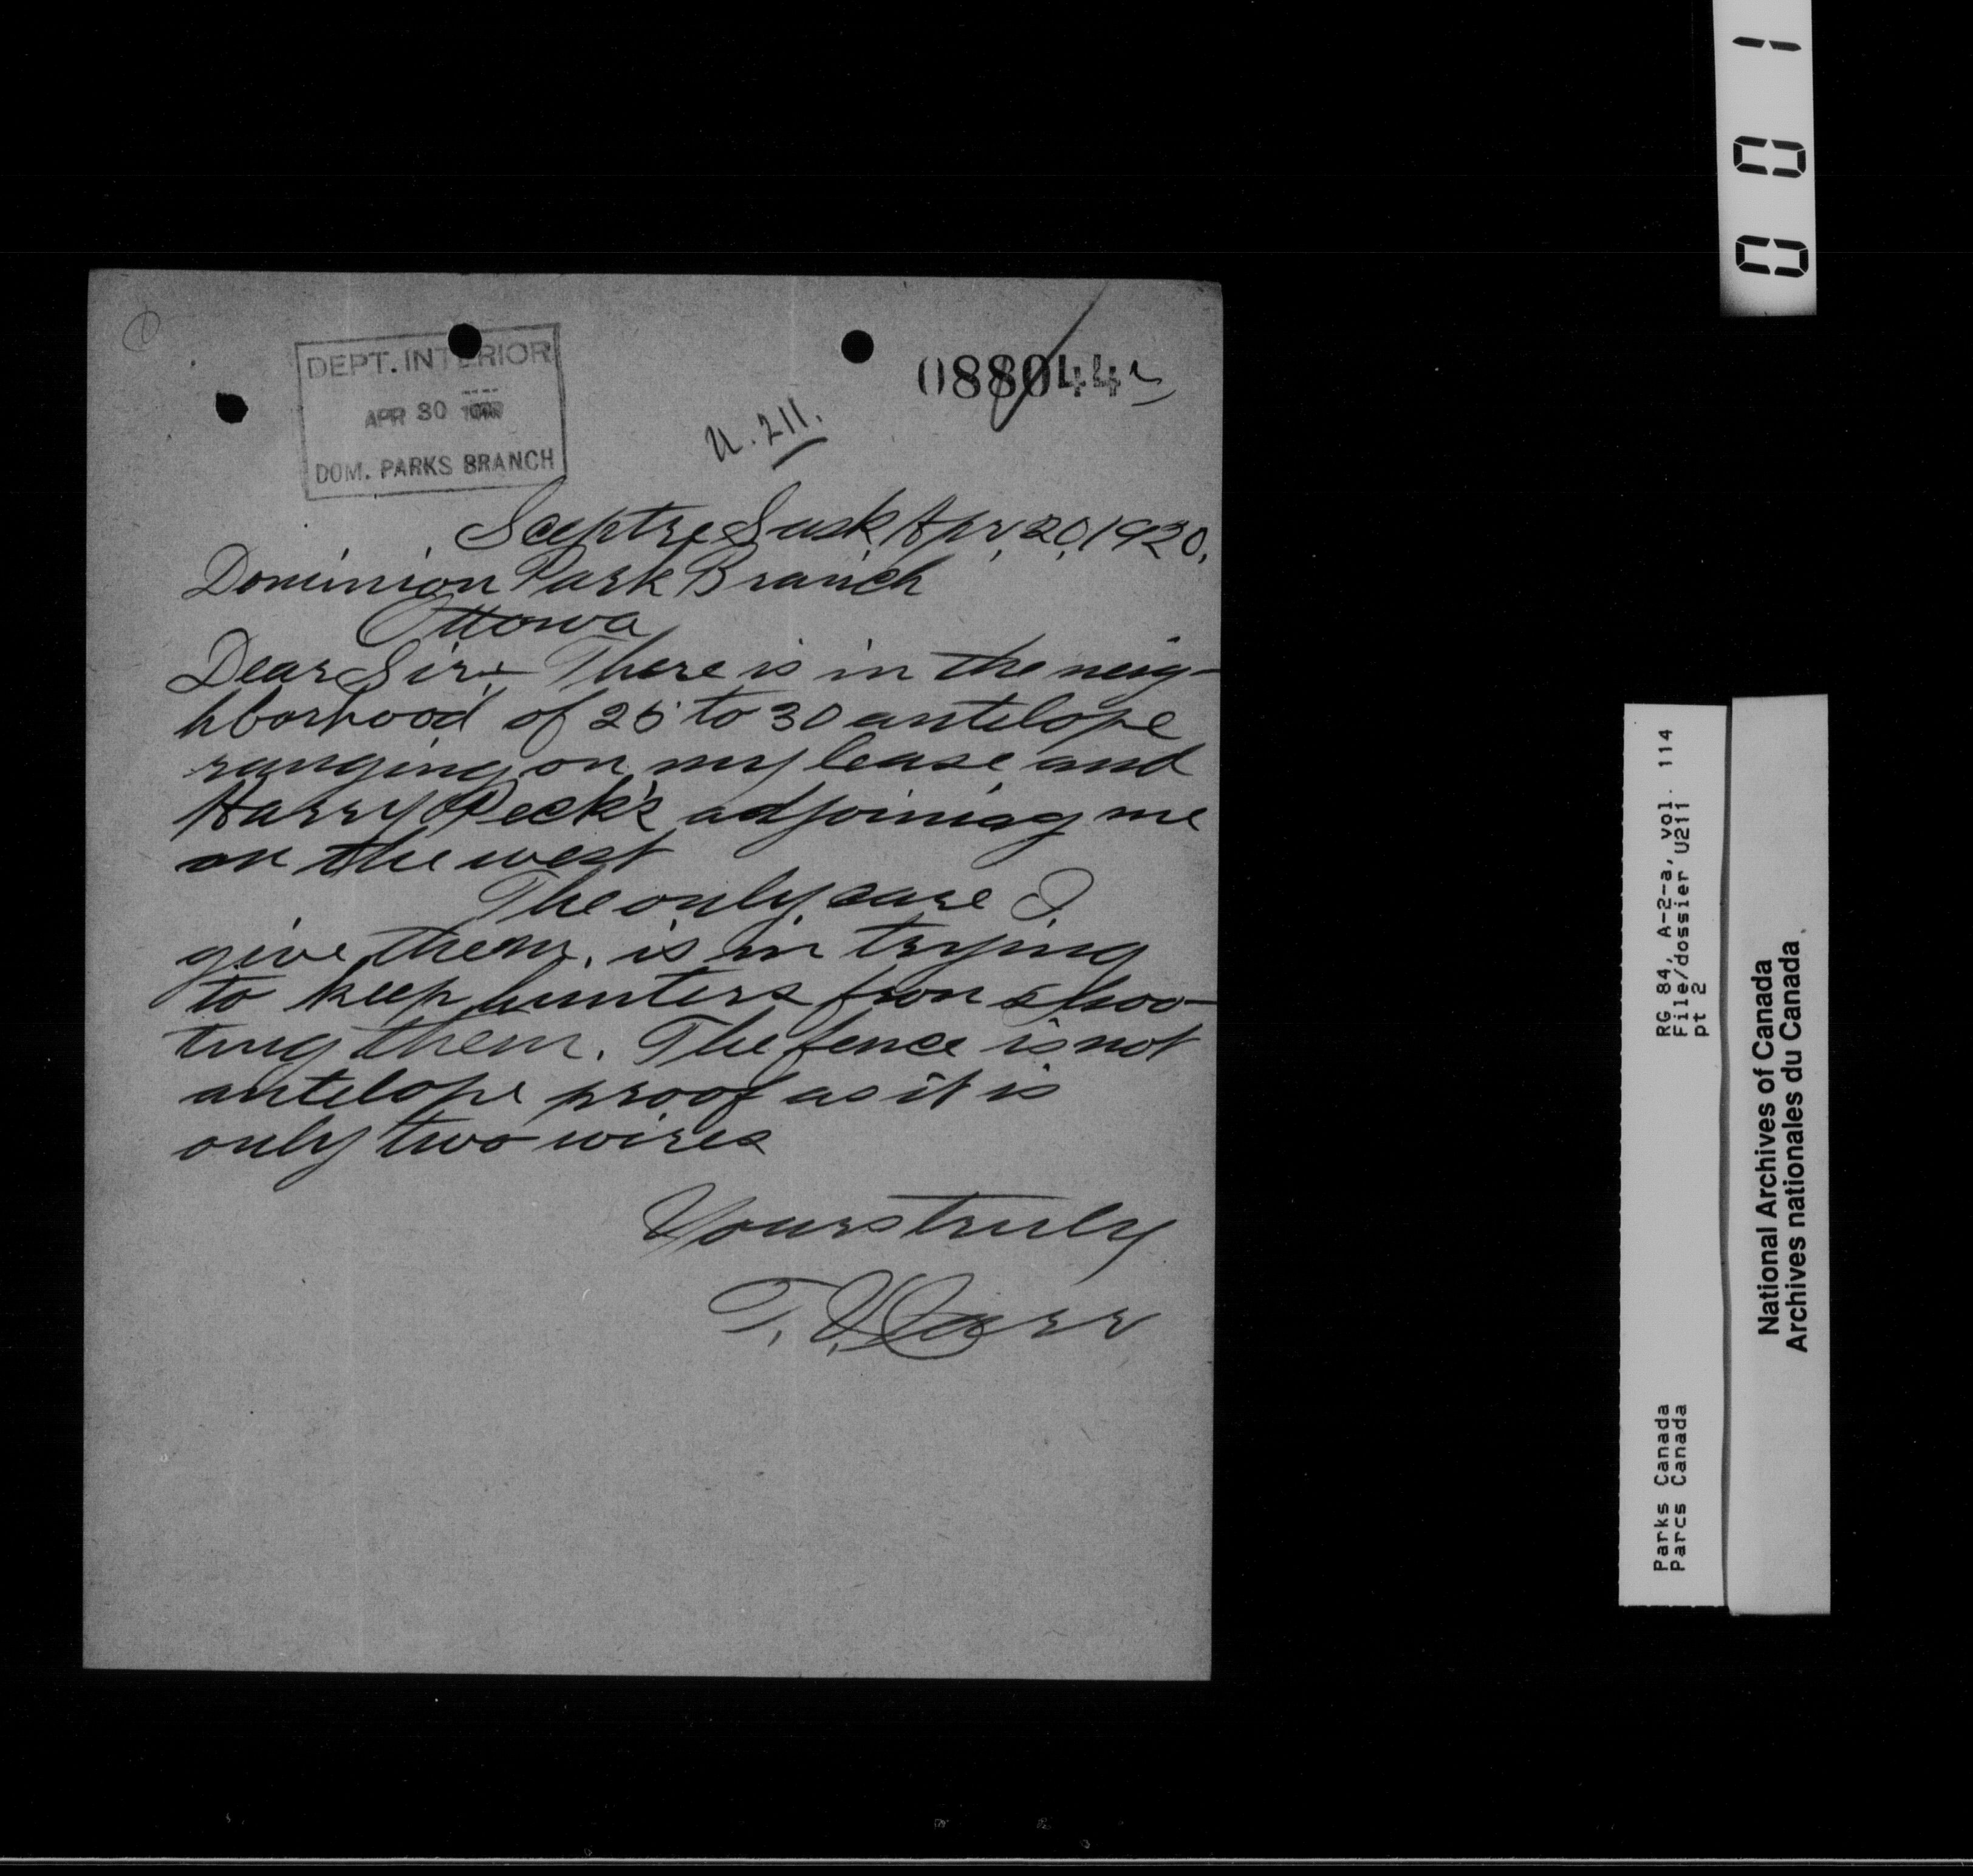 DEPT. INTERIOR
APR 30
DOM. PARKS BRANCH
088044
U.211.
Sceptre Sask, Apr, 20, 1920,
Dominion Park Branch
Ottowa
Dear Sir:- There is in the neig-
hborhood of 25 to 30 antelope
ranging on my lease and
Harry Peck's adjoining me
on the west
The only care I
give them, is in trying
to keep hunters from shoo-
ting them. The fence is not
antelope proof as it is
only two wires
Yours truly
001
RG 84, A-2-a, vol. 114
File/dossier U211
pt 2
Parks Canada
Parcs Canada
National Archives of Canada
Archives nationales du Canada